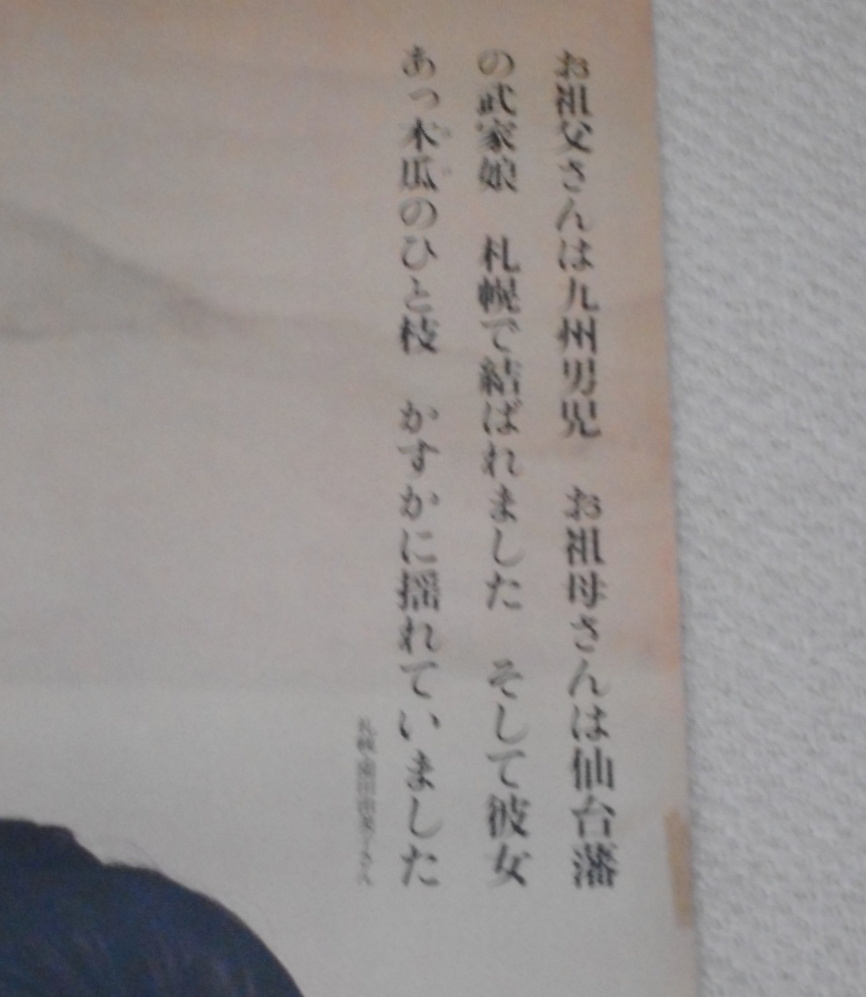 お祖父さんは九州男児　お祖母さんは仙台藩
の武家娘　札幌で結ばれました　そして彼女
あっ木瓜のひと枝　かすかに揺れていました
札幌